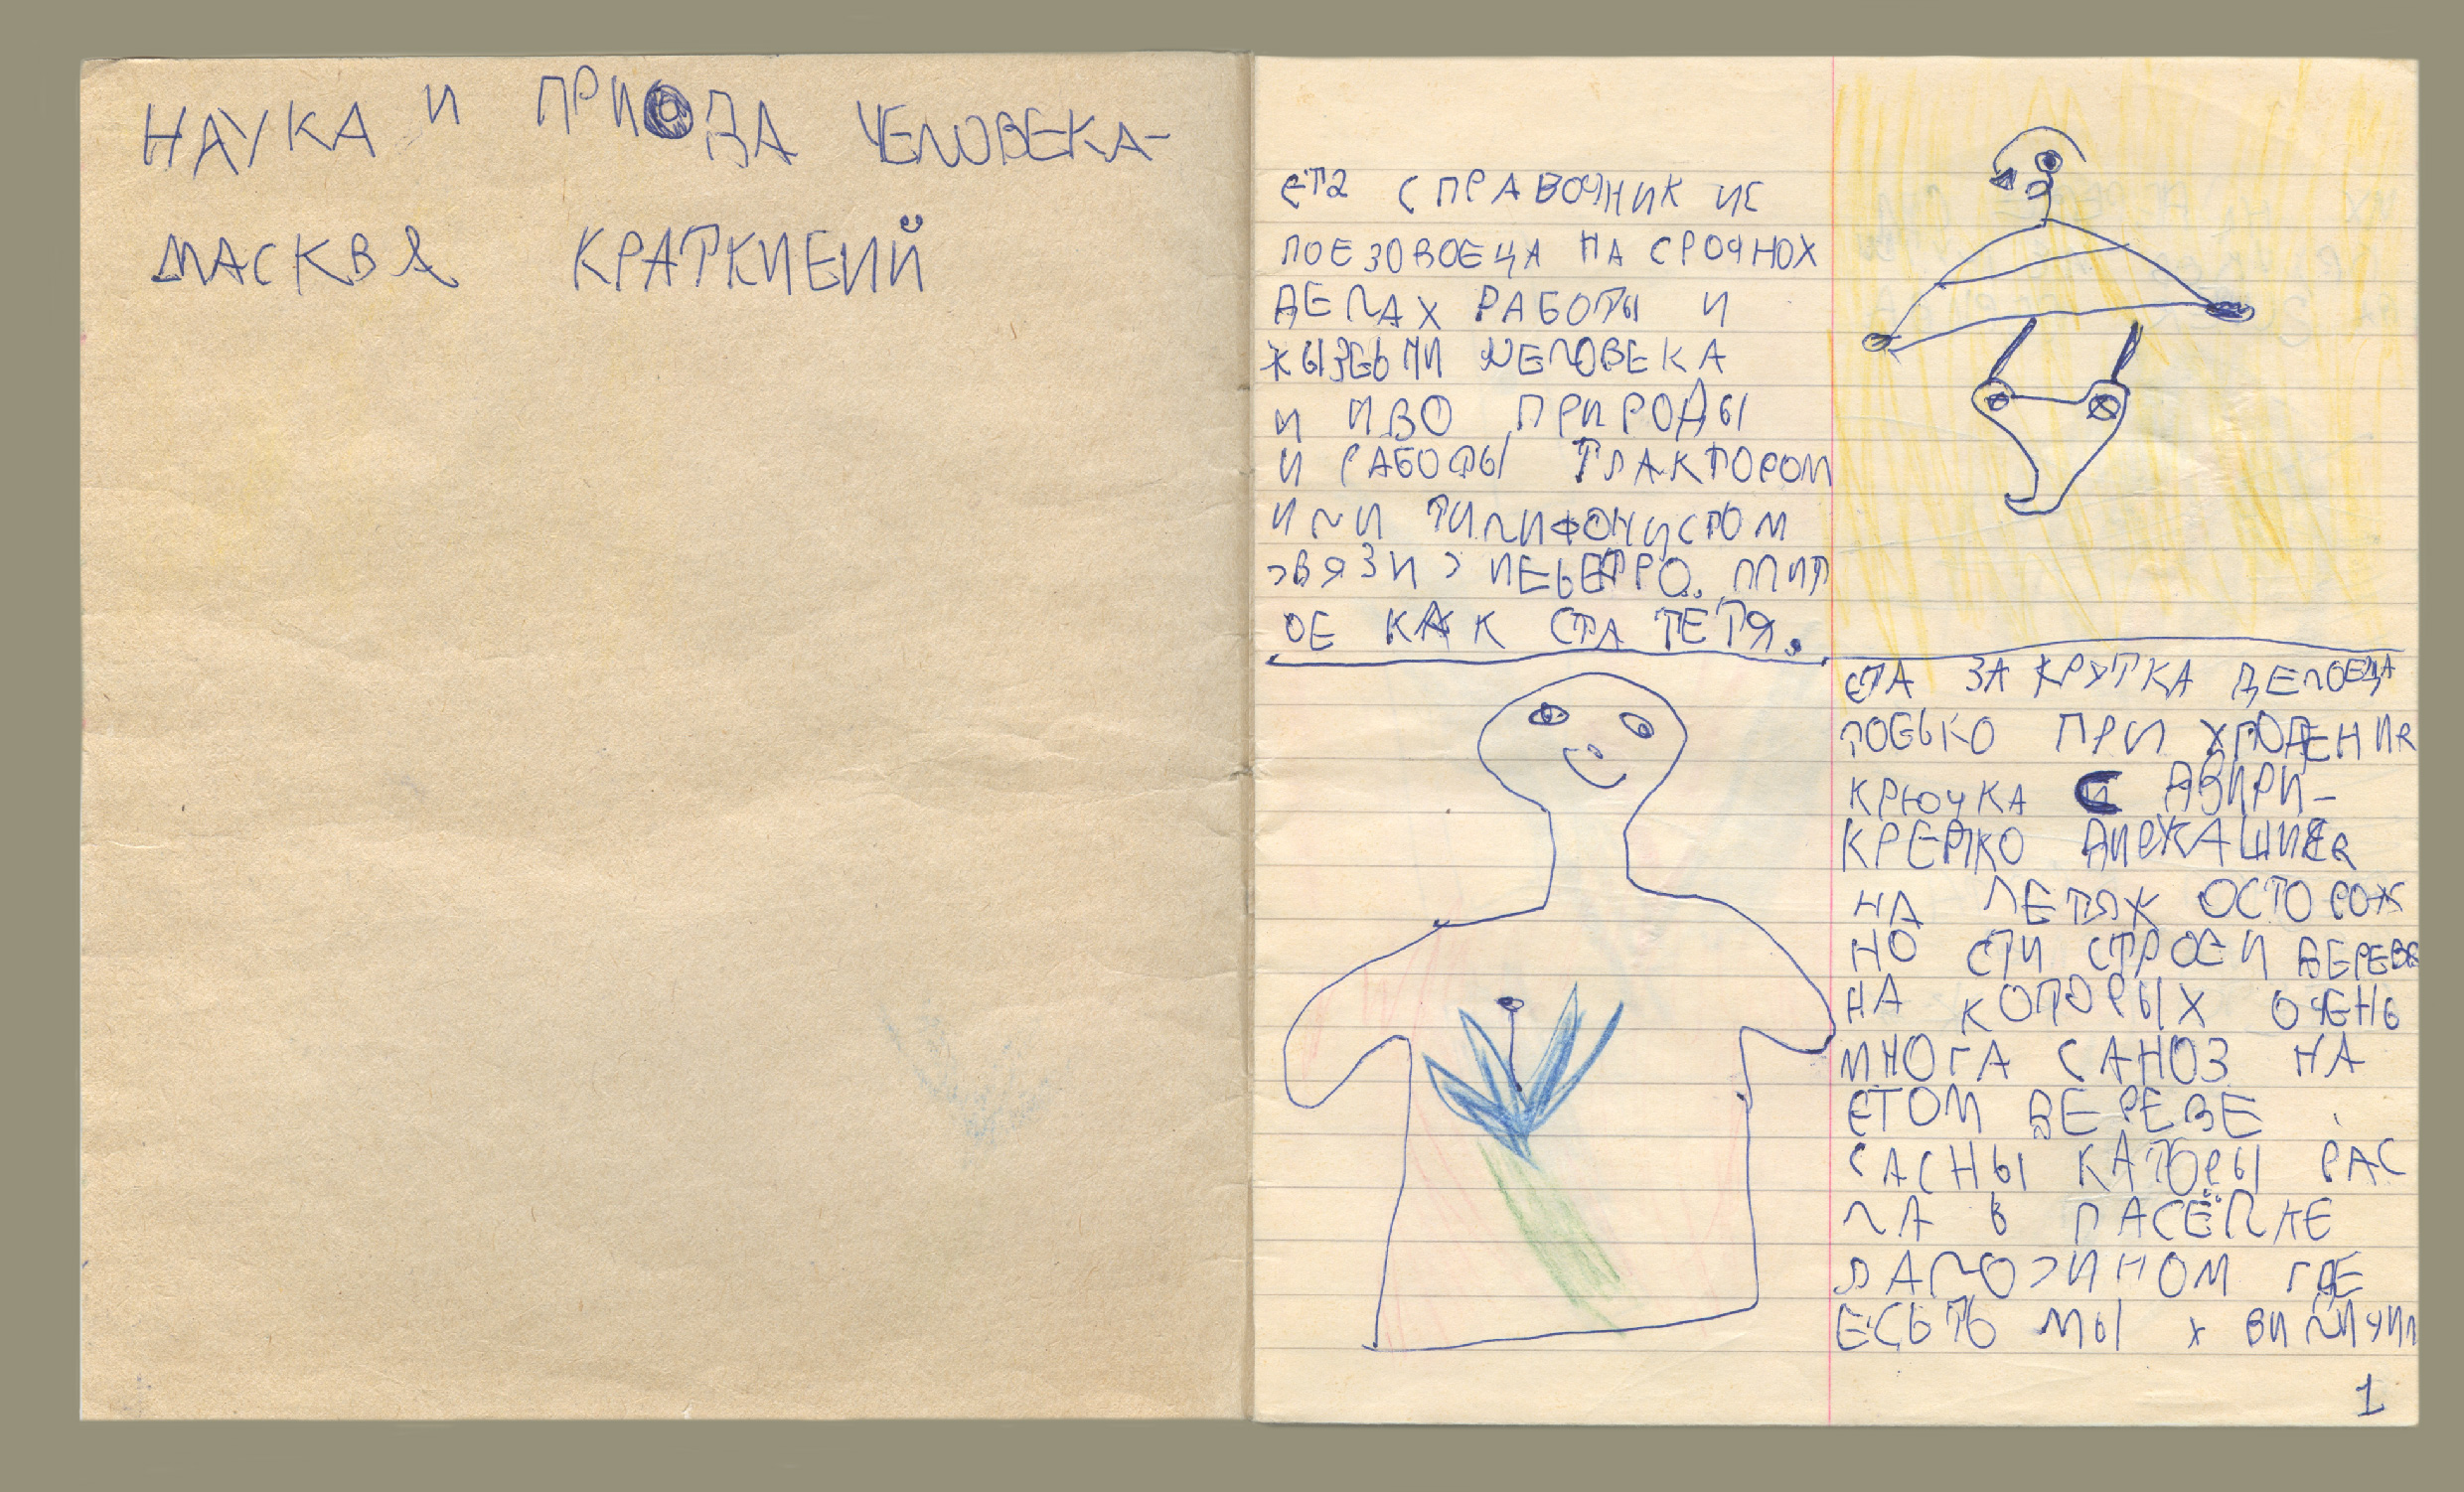 НАУКА И ПРИОДА ЧЕЛОВЕКА-
МАСКВА КРАТКИЕИЙ
ЕТА СПРАВОЧНИК ИС
ПОЕЗОВОЕЦА НА СРОЧНОХ
ДЕЛАХ РАБОТЫ И
ЖЫЗЕЬНИ ЧЕЛОВЕКА
И ИВО ПРИРОДЫ
И РАБОТЫ ТРАКТОРОМ
ИЛИ ТИЛИФОНИСТОМ
ОЕ КАК СТА ТЕТЯ.
ЕТА ЗА КРУТКА ДЕЛОЕЦА
ТОЕЬКО ПРИ
КРЮЧКА С ДВИРИ-
КРЕПКО
НА ОСТОРОЖ
НО ЕТИ СТРОЕИ ДЕРЕВЕ
НА КОТОРЫХ ОЧЕНЬ
МНОГА САНОЗ НА
ЕТОМ ДЕРЕВЕ
САСНЫ КАТОРЫ РАС
ЛА В ПАСЁЛКЕ
ГДЕ
ЕСЬТЬ МЫ Х ВИЛИЧИЛ
1